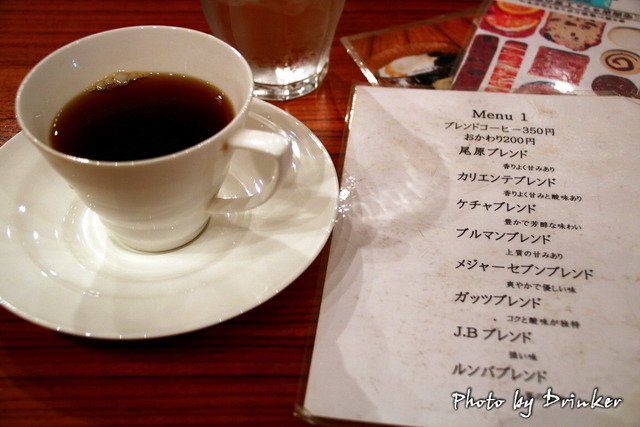 Menu 1
ブレンドコーヒー350円
おかわり200円
尾原ブレンド
香りよく甘みあり
カリエンテブレンド
香りよく甘みと酸味あり
ケチャブレンド
豊かで芳醇な味わい
ブルマンブレンド
上質の甘みあり
メジャーセブンブレンド
爽やかで優しい味
ガッツブレンド
コクと酸味が独特
J.Bブレンド
強い味
ルンバブレンド
Photo by Drinker